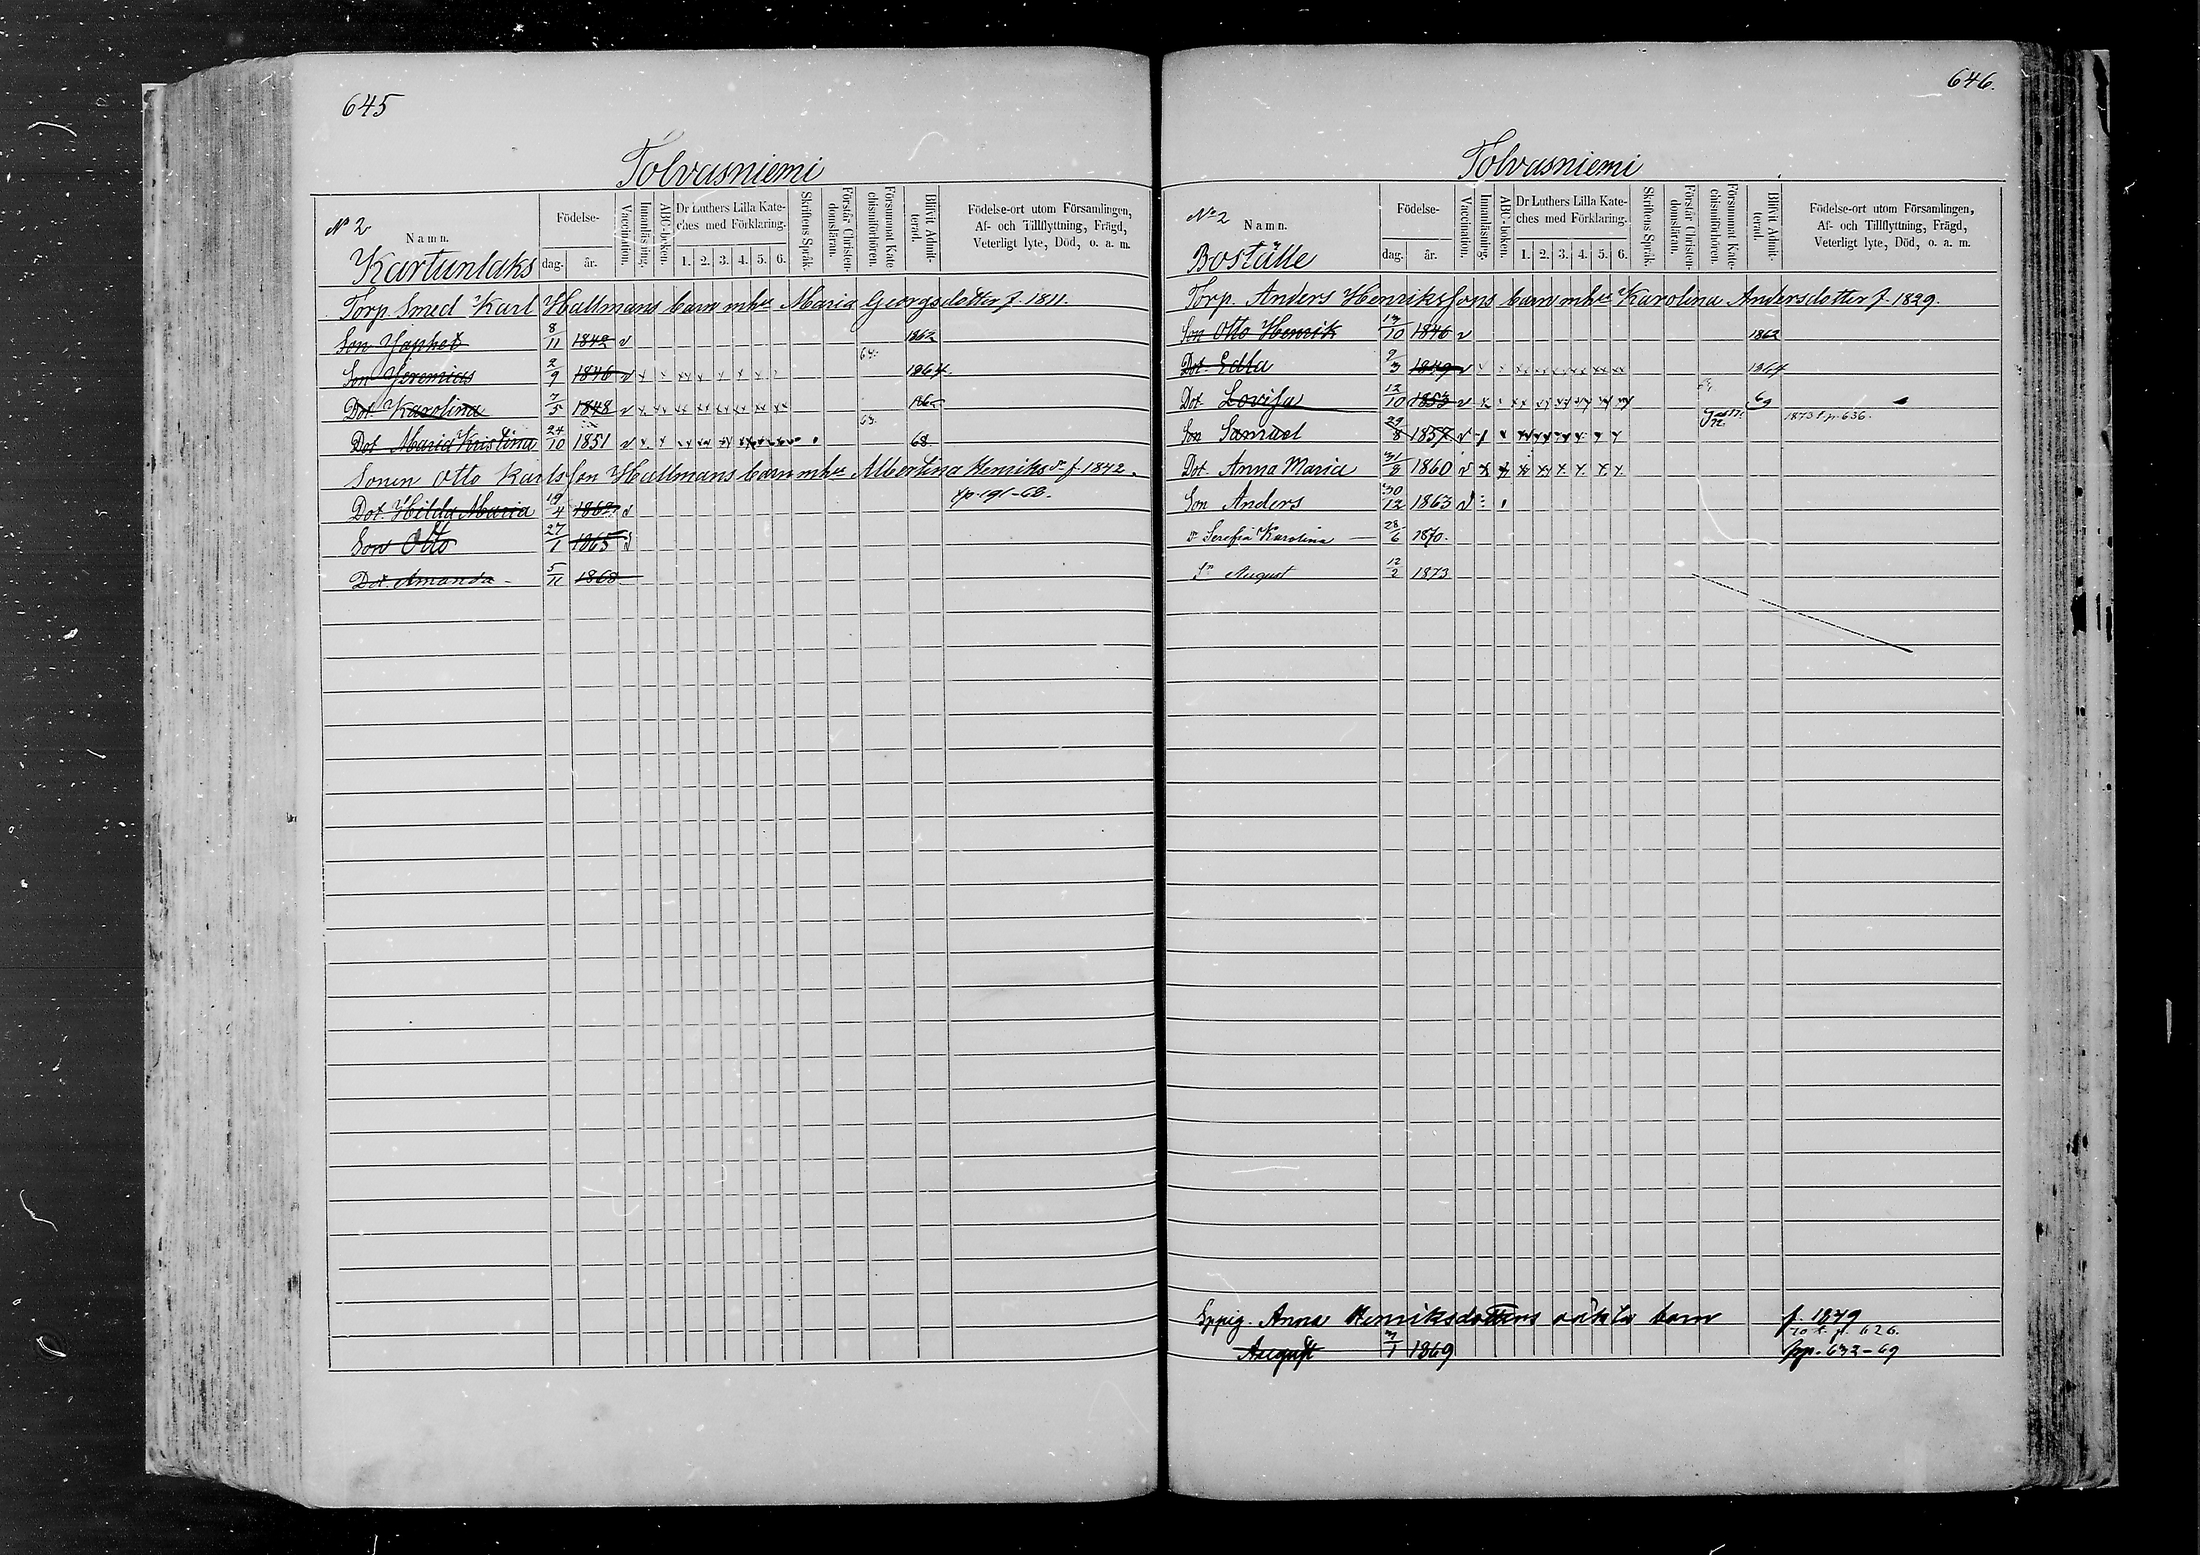 645
Tolvasniemi
No 2
Namn.
Kartunlaks
Födelse-
dag. år.
Vaccination.
Innanläsning.
ABC-boken.
Dr Luthers Lilla Kate-
ches med Förklaring.
1. 2. 3. 4. 5. 6.
Skriftens Språk.
Förstår Christen-
domsläran.
Försummat Kate
chismiförhören.
Blifvit Admit-
terad.
Födelse-ort utom Församlingen,
Af- och Tillflyttning, Frägd,
Veterligt lyte, Död, o. a. m.
Torp. Smed Karl Hallmans barn m hu Maria Georgsdotter f. 1811.
Son Japhet 8/11 1842 v 1862
Son Jeremias 2/9 1846 v x x xx x x x x 64. 1864.
Dot Karolina 7/5 1848 v x x xx xx xx xx xx xx
Dot Maria Kristina 24/10 1851 v 63. 68.
Sonen Otto Karlsson Hallmans barn m hu Albertina Henriksdr f. 1842.
Dot. Hilda Maria 19/4 1862 v fp. 191-68.
Son Otto 27/1 1865 v
Dot. Amanda 5/11 1868
646.
Tolvasniemi
No 2
Namn.
Boställe
Födelse-
dag. år.
Vaccination.
Innanläsning.
ABC-boken.
Dr Luthers Lilla Kate-
ches med Förklaring.
1. 2. 3. 4. 5. 6.
Skriftens Språk.
Förstår Christen-
domsläran.
Försummat Kate-
chismiförhören.
Blifvit Admit-
terad.
Födelse-ort utom Församlingen,
Af- och Tillflyttning, Frägd,
Veterligt lyte, Död, o. a. m.
Torp. Anders Henrikssons barn m hu Karolina Andersdotter f. 1829.
Son Otto Henrik 13/10 1846 v 1862
Dot. Edla 9/3 1849 v 1864
Dot Lovisa 12/10 1853 v 69
Son Samuel 29/8 1857 v 1873 t. p. 636.
Dot. Anna Maria 31/8 1860 v
Son Anders 30/12 1863 v
Dr Serefia Karolina 28/6 1870.
Sn August 12/2 1873
Sppig. Anna Henriksdotters oäkta barn f. 1849
70 t. p. 626.
August 3/1 1869 fp. 632-69